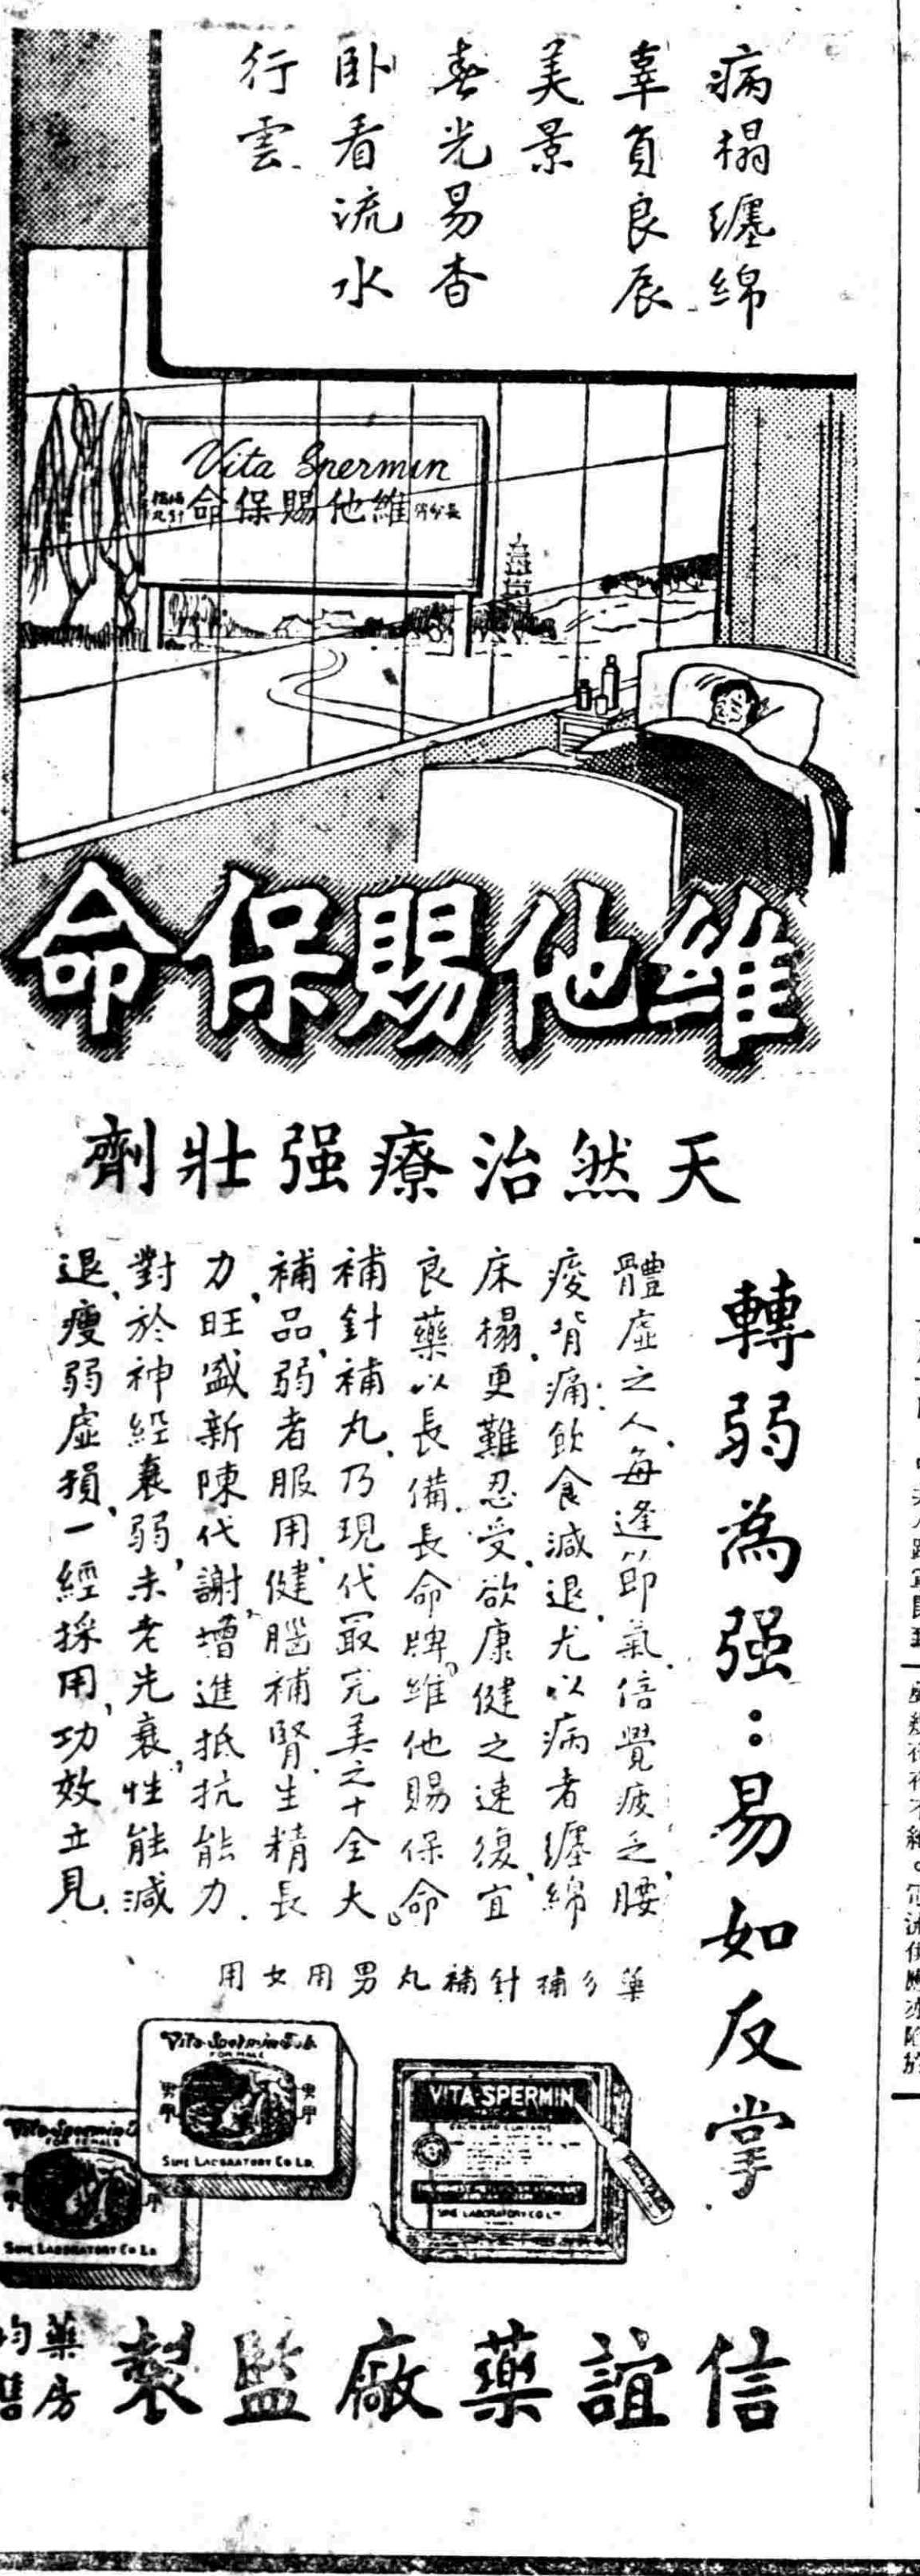 病榻纏綿
辜負良辰
美景
春光易杳
卧看流水
行雲
Vita Spermin
維他賜保命
維他賜保命
天然治療强壯劑
轉弱為强：易如反掌
體虛之人、每逢節氣、倍覺疲乏、腰
痠背痛、飲食減退、尤以病者纏綿
床榻、更難忍受、欲康健之速復、宜
良藥以長備、長命牌「維他賜保命」
補針補丸、乃現代最完美之十全大
補品、弱者服用、健腦補腎、生精長
力、旺盛新陳代謝、增進抵抗能力、
對於神經衰弱、未老先衰、性能減
退、瘦弱虛損、一經採用、功效立見
藥分補針補丸男用女用
FOR MALE
男
男
SINE LABORATORY CO LD.
FOR FEMALE
SINE LABORATORY Co LD
VITA-SPERMIN
SINE LABORATORY CO LTD
信誼藥廠監製
藥房
均售